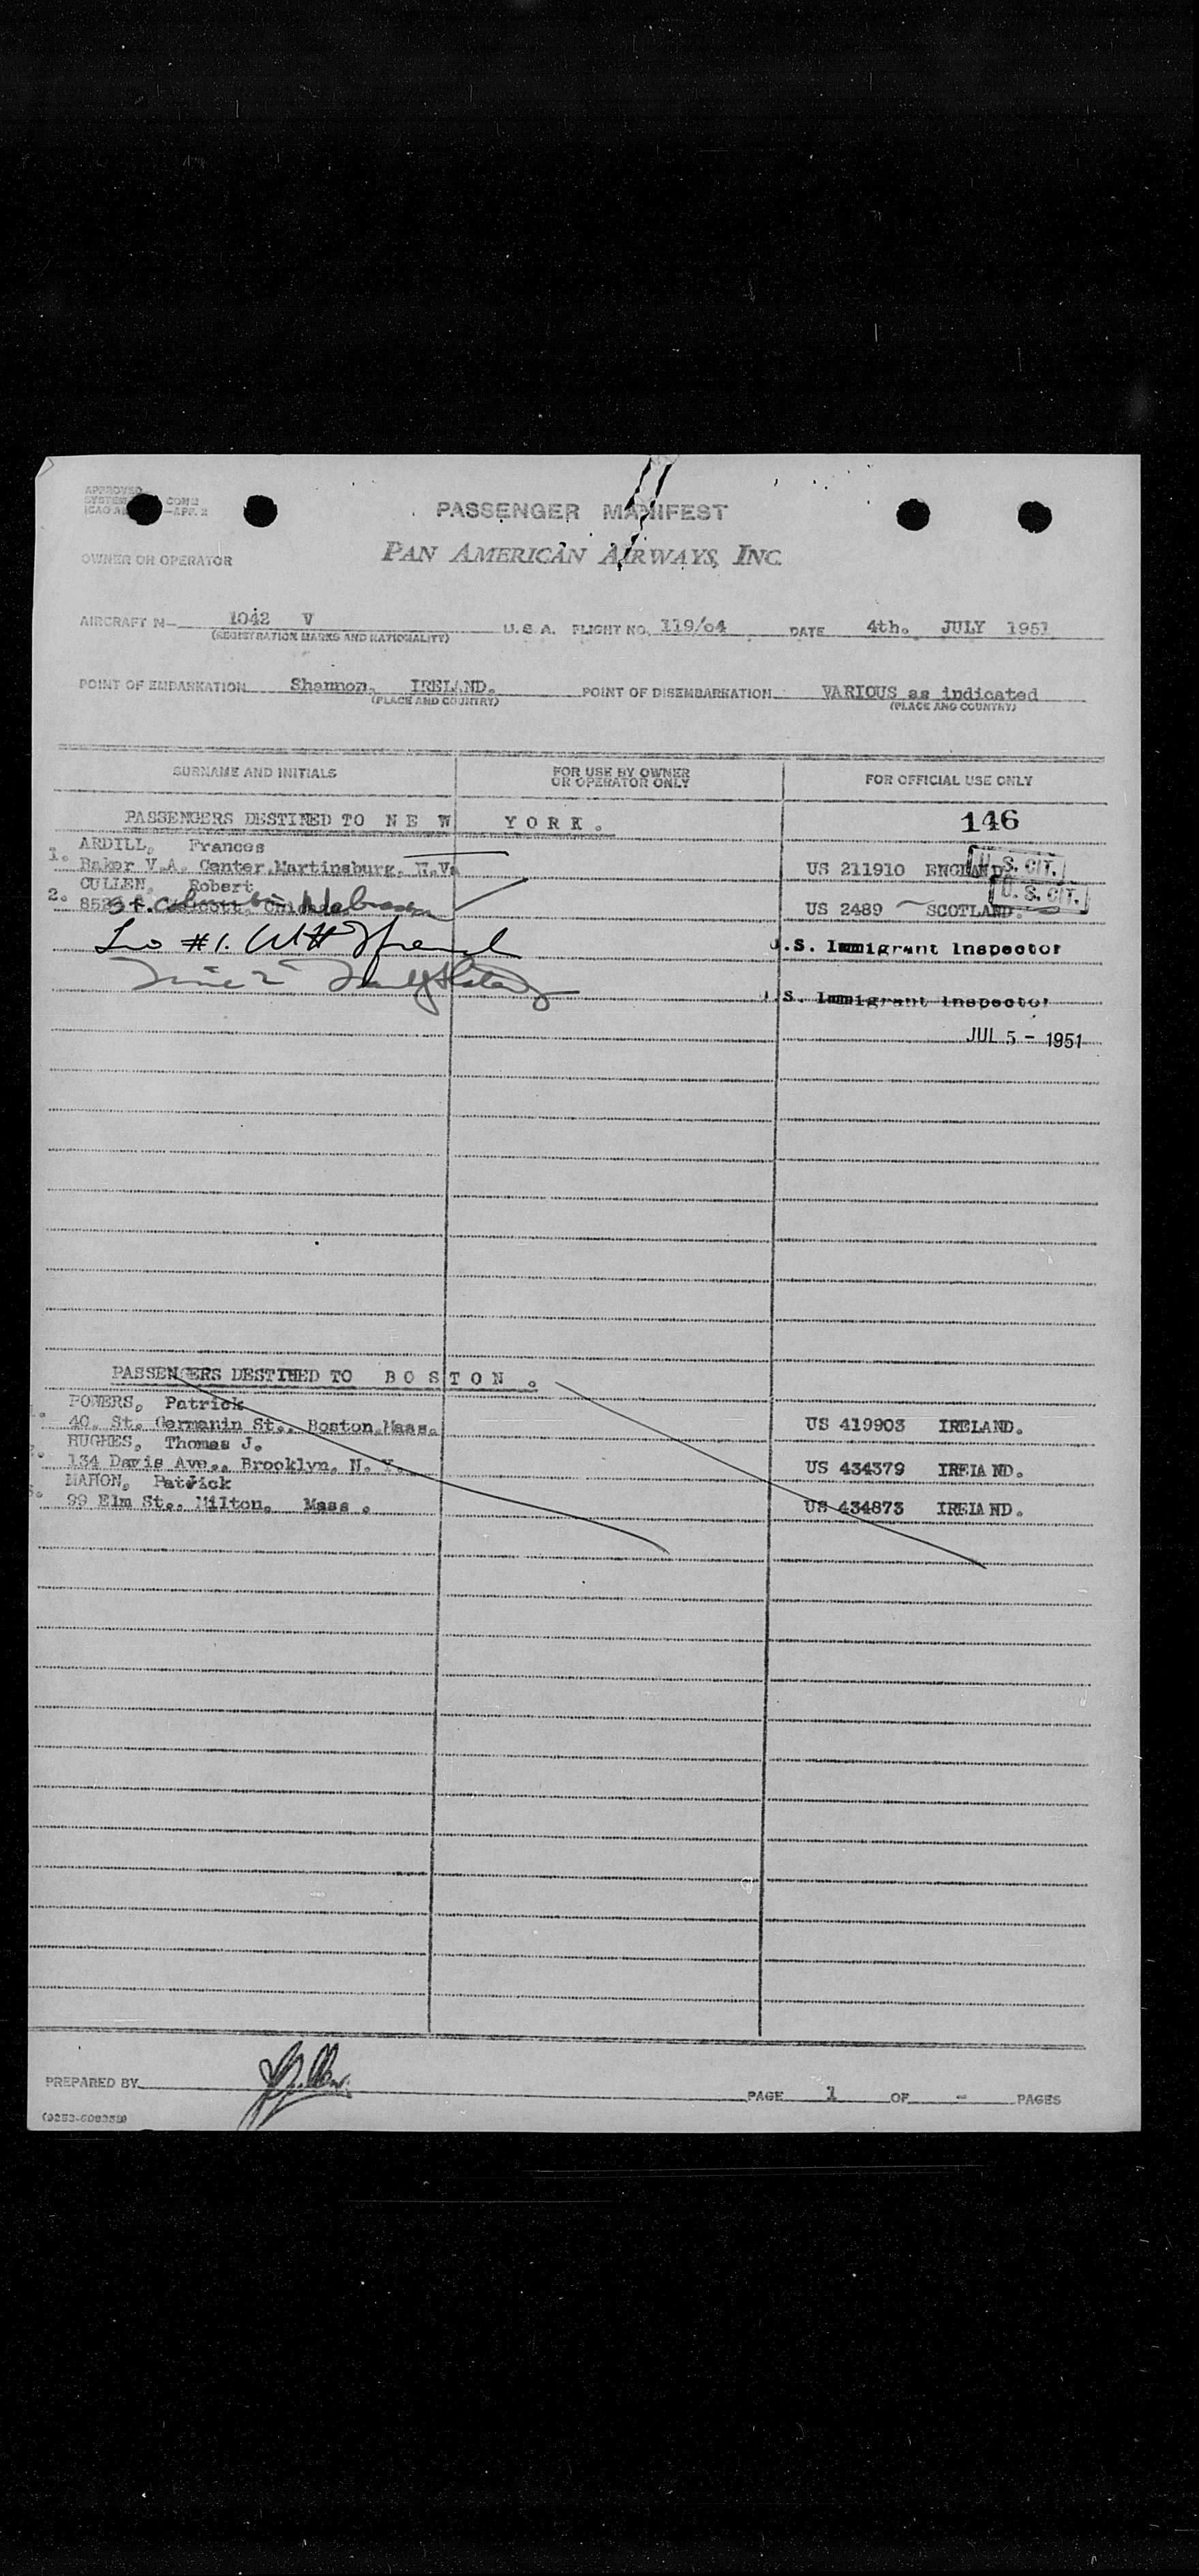 APPROVED
SYSTEM COM 2
ICAO AN —APP. 2
PASSENGER MANIFEST
OWNER OR OPERATOR PAN AMERICAN AIRWAYS, INC.
AIRCRAFT N— 1042 V U. S. A. FLIGHT NO. 119/04 DATE 4th. JULY 1951
(REGISTRATION MARKS AND NATIONALITY)
POINT OF EMBARKATION Shannon, IRELAND. POINT OF DISEMBARKATION VARIOUS as indicated
(PLACE AND COUNTRY) (PLACE AND COUNTRY)
SURNAME AND INITIALS FOR USE BY OWNER OR OPERATOR ONLY FOR OFFICIAL USE ONLY
PASSENGERS DESTINED TO N E W Y O R K . 146
ARDILL, Frances
1. Baker V.A. Center, Martinsburg, W.Va US 211910 ENGLAND U. S. CIT.
CULLEN, Robert
2. St. Columbia US 2489 SCOTLAND. U. S. CIT.
#1. U.S. Immigrant Inspector
U.S. Immigrant Inspector
JUL 5 - 1951
PASSENGERS DESTINED TO B O S T O N .
POWERS, Patrick
40, St. Germanin St., Boston, Mass. US 419903 IRELAND.
HUGHES, Thomas J.
134 Davis Ave., Brooklyn, N. Y. US 434379 IRELAND.
MAHON, Patrick
99 Elm St., Milton, Mass. US 434873 IRELAND.
PREPARED BY PAGE 1 OF - PAGES